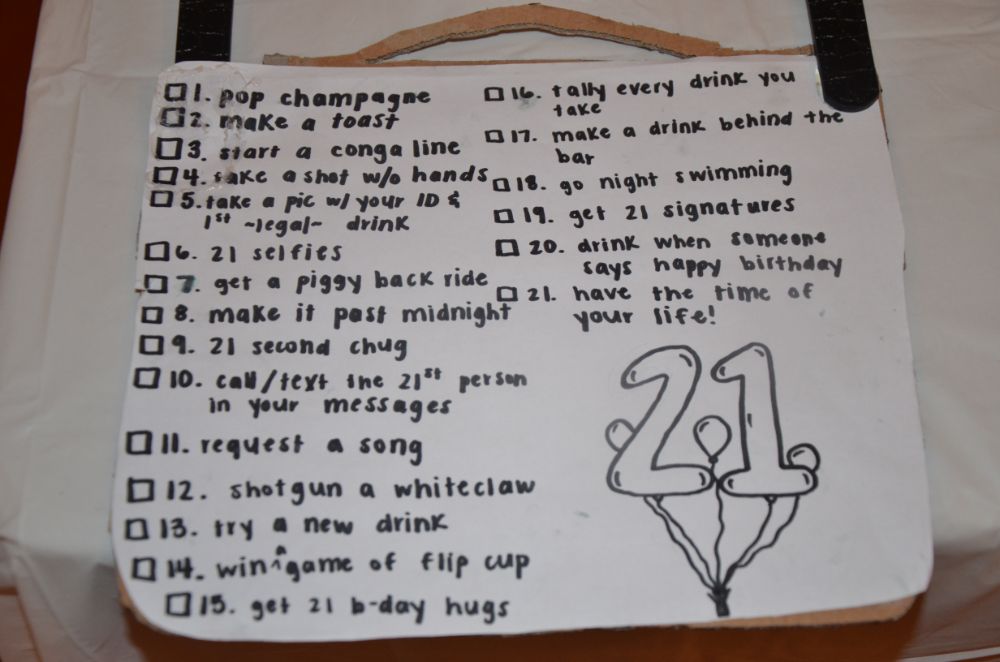 1. pop champagne
2. make a toast
3. start a conga line
4. take a shot w/o hands
5. take a pic w/ your ID &
1st ~legal~ drink
6. 21 selfies
7. get a piggy back ride
8. make it past midnight
9. 21 second chug
10. call/text the 21st person
in your messages
11. request a song
12. shotgun a whiteclaw
13. try a new drink
14. win a game of flip cup
15. get 21 b-day hugs
16. tally every drink you
take
17. make a drink behind the
bar
18. go night swimming
19. get 21 signatures
20. drink when someone
says happy birthday
21. have the time of
your life!
21